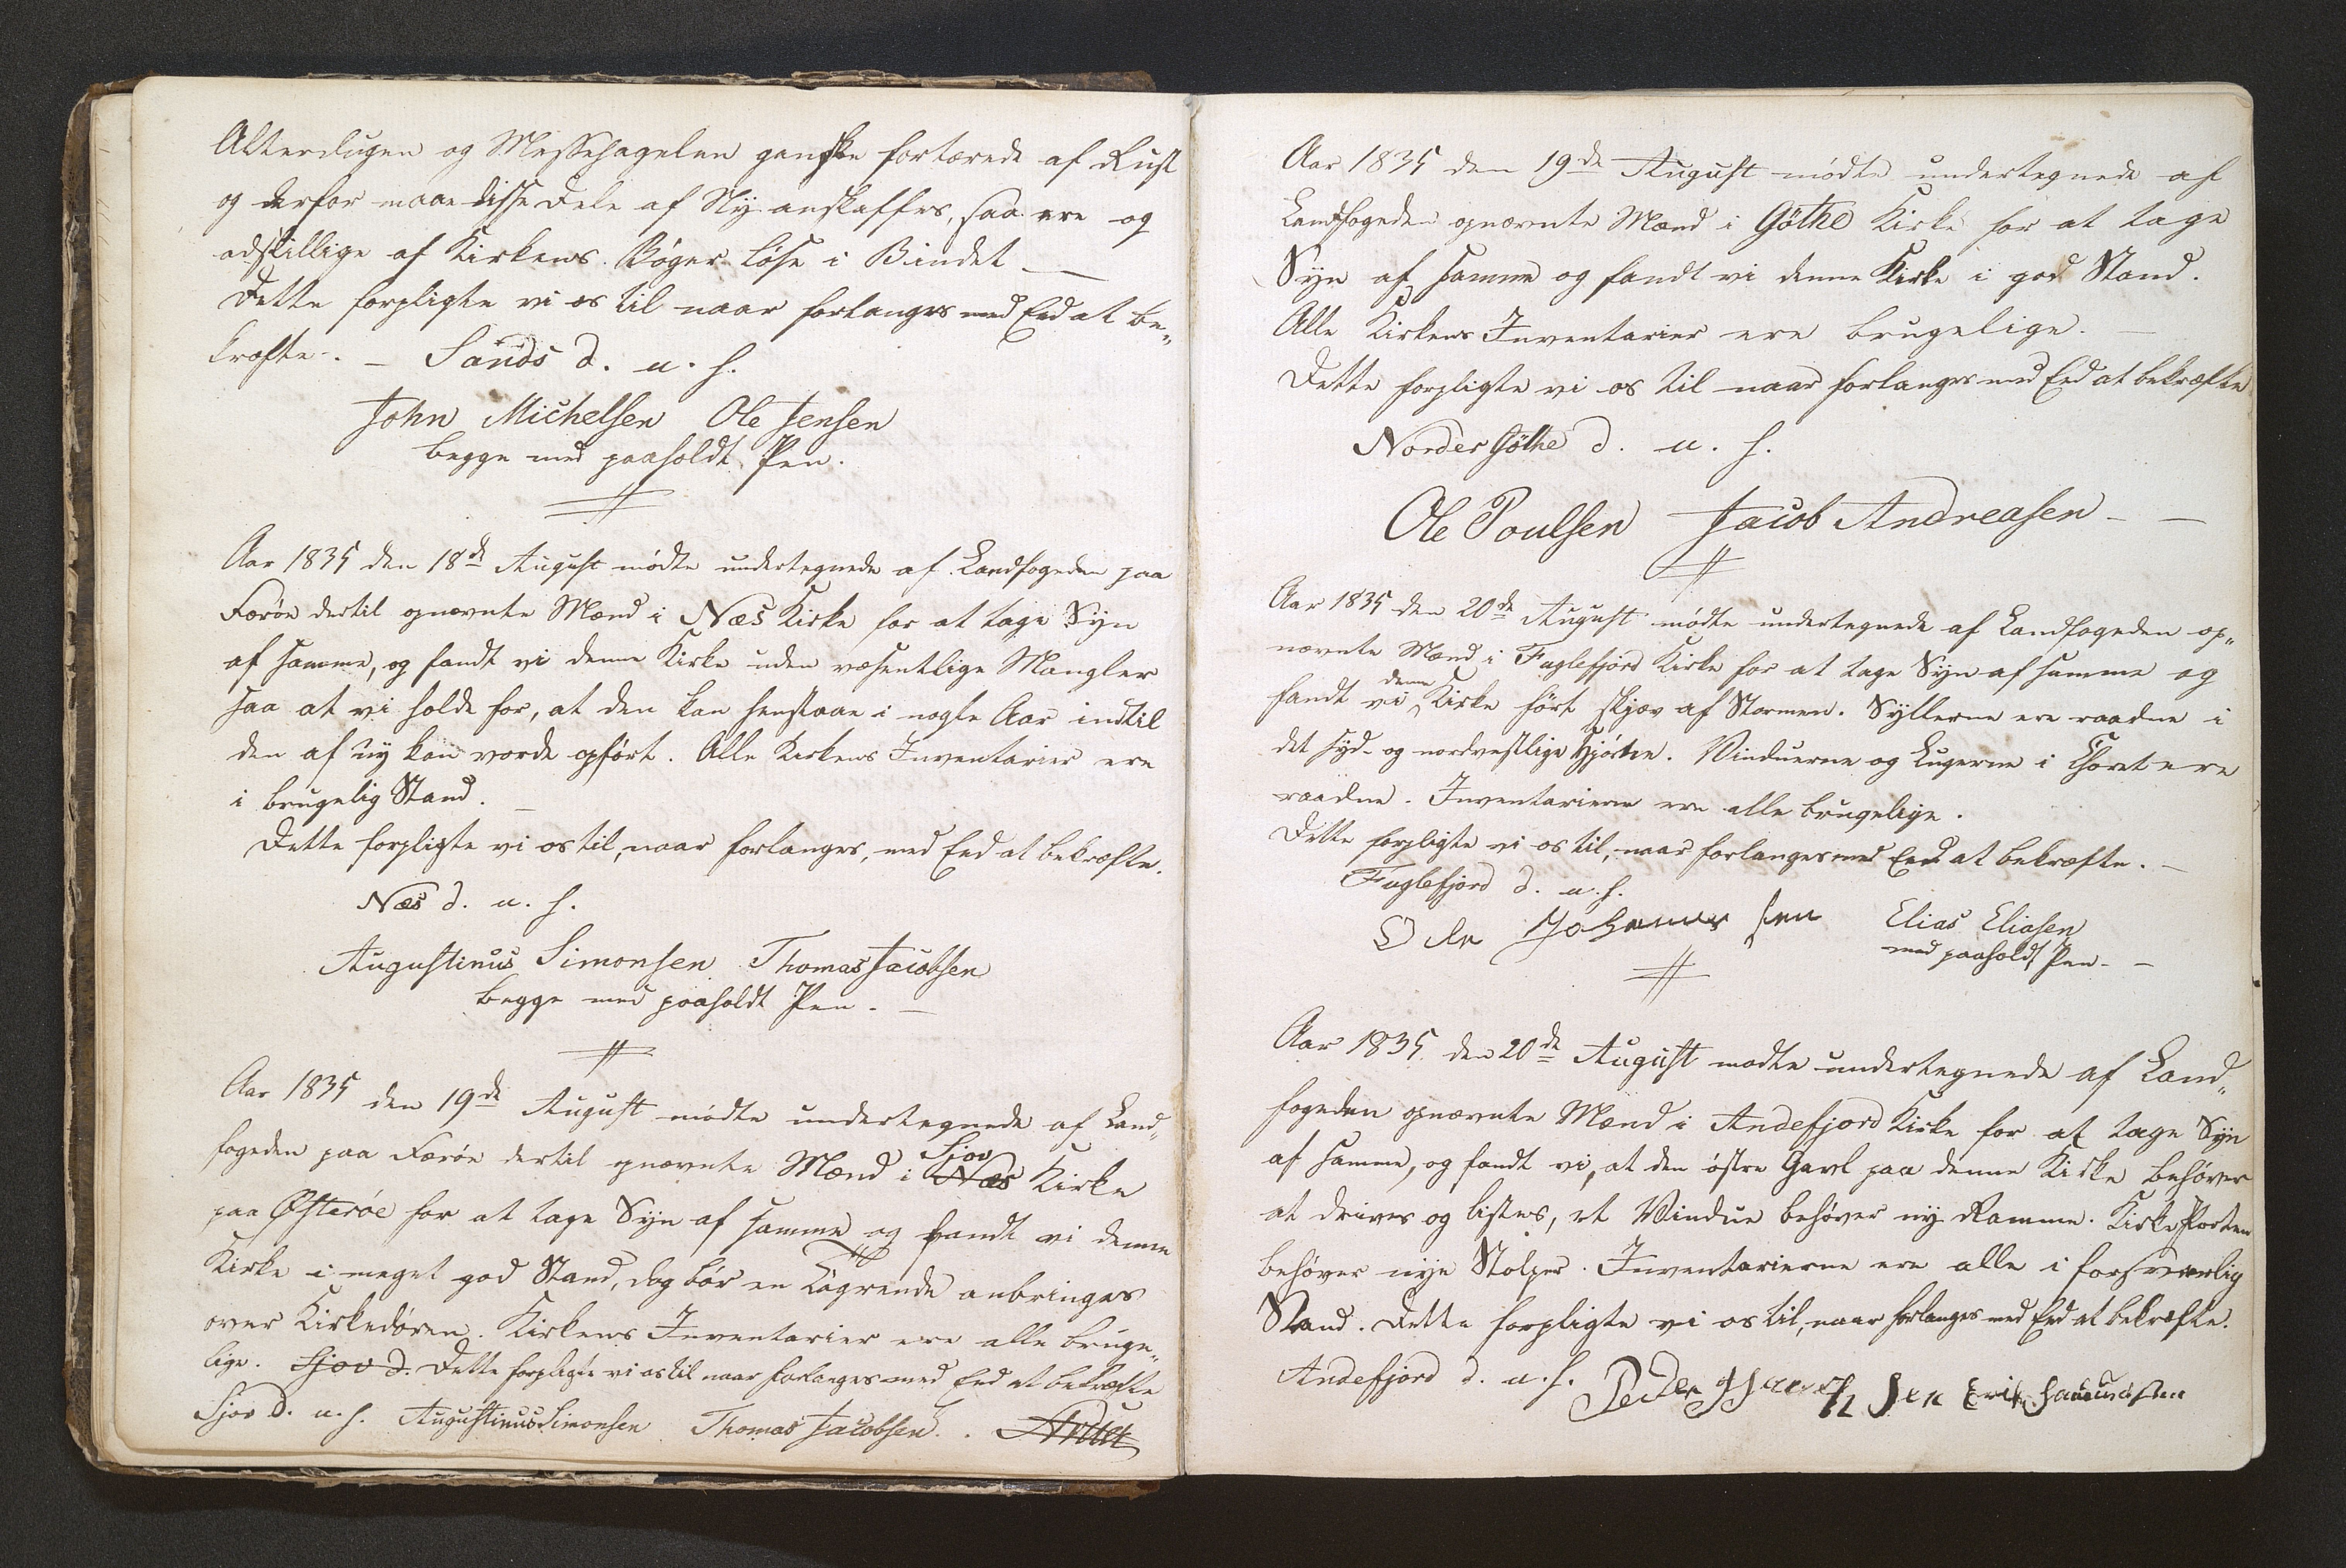 Alterdugen og Messehagelen ganske fortærede af Rust
og derfor maae disse Dele af Ny anskaffes, saa ere og
adskillige af Kirkens Bøger løse i Bindet —
Dette forpligte vi os til naar forlanges med Eed at be„
kræfte. — Sands d. u. s.
John Michelsen Ole Jensen
begge med paaholdt Pen.
Aar 1835 den 18de August mødte undertegnede af Landfogeden paa
Færøe dertil opnævnte Mænd i Næs Kirke for at tage Syn
af samme, og fandt vi denne Kirke uden væsentlige Mangler
saa at vi holde for, at den kan henstaae i nogle Aar indtil
den af ny kan vorde opført. Alle Kirkens Inventarier ere
i brugelig Stand. —
Dette forpligte vi os til, naar forlanges, med Eed at bekræfte.
Næs d. u. s.
Augustinus Simonsen Thomas Jacobsen
begge med paaholdt Pen. —
Aar 1835 den 19de August mødte undertegnede af Land„
fogeden paa Færøe dertil opnævnte Mænd i Næs Sjov Kirke
paa Østerøe for at tage Syn af samme og fandt vi denne
Kirke i meget god Stand, dog bør en Tagrende anbringes
over Kirkedøren. Kirkens Inventarier ere alle bruge„
lige. Sjov d. Dette forpligte vi os til naar forlanges med Eed at bekræfte
Sjov d. u. s. Augustinus Simonsen Thomas Jacobsen.
Aar 1835 den 19de August mødte undertegnede af
Landfogeden opnævnte Mænd i Göthe Kirke for at tage
Syn af samme og fandt vi denne Kirke i god Stand.
Alle Kirkens Inventarier ere brugelige. —
Dette forpligte vi os til naar forlanges med Eed at bekræfte
Norder Göthe d. u. s.
Ole Poulsen Jacob Andreasen — —
Aar 1835 den 20de August mødte undertegnede af Landfogeden op„
nævnte Mænd i Fuglefjord Kirke for at tage Syn af samme og
fandt vi denne Kirke ført skjæv af Stormen. Syllerne ere raadne i
det syd- og nordvestlige Hjørne. Vinduerne og Lugerne i Choret ere
raadne. Inventarierne ere alle brugelige.
Dette forpligte vi os til, naar forlanges med Eed at bekræfte. —
Fuglefjord d. u. s.
Ole Johannes sen Elias Eliasen
med paaholdt Pen. —
Aar 1835 den 20de August mødte undertegnede af Land„
fogeden opnævnte Mænd i Andefjord Kirke for at tage Syn
af samme, og fandt vi, at den østre Gavl paa denne Kirke behøver
at drives og listes, et Vindue behøver ny Ramme. Kirke Porten
behøver nye Stolper. Inventarierne ere alle i forsvarlig
Stand. Dette forpligte vi os til, naar forlanges med Eed at bekræfte.
Andefjord d. u. s. Peder Hansen